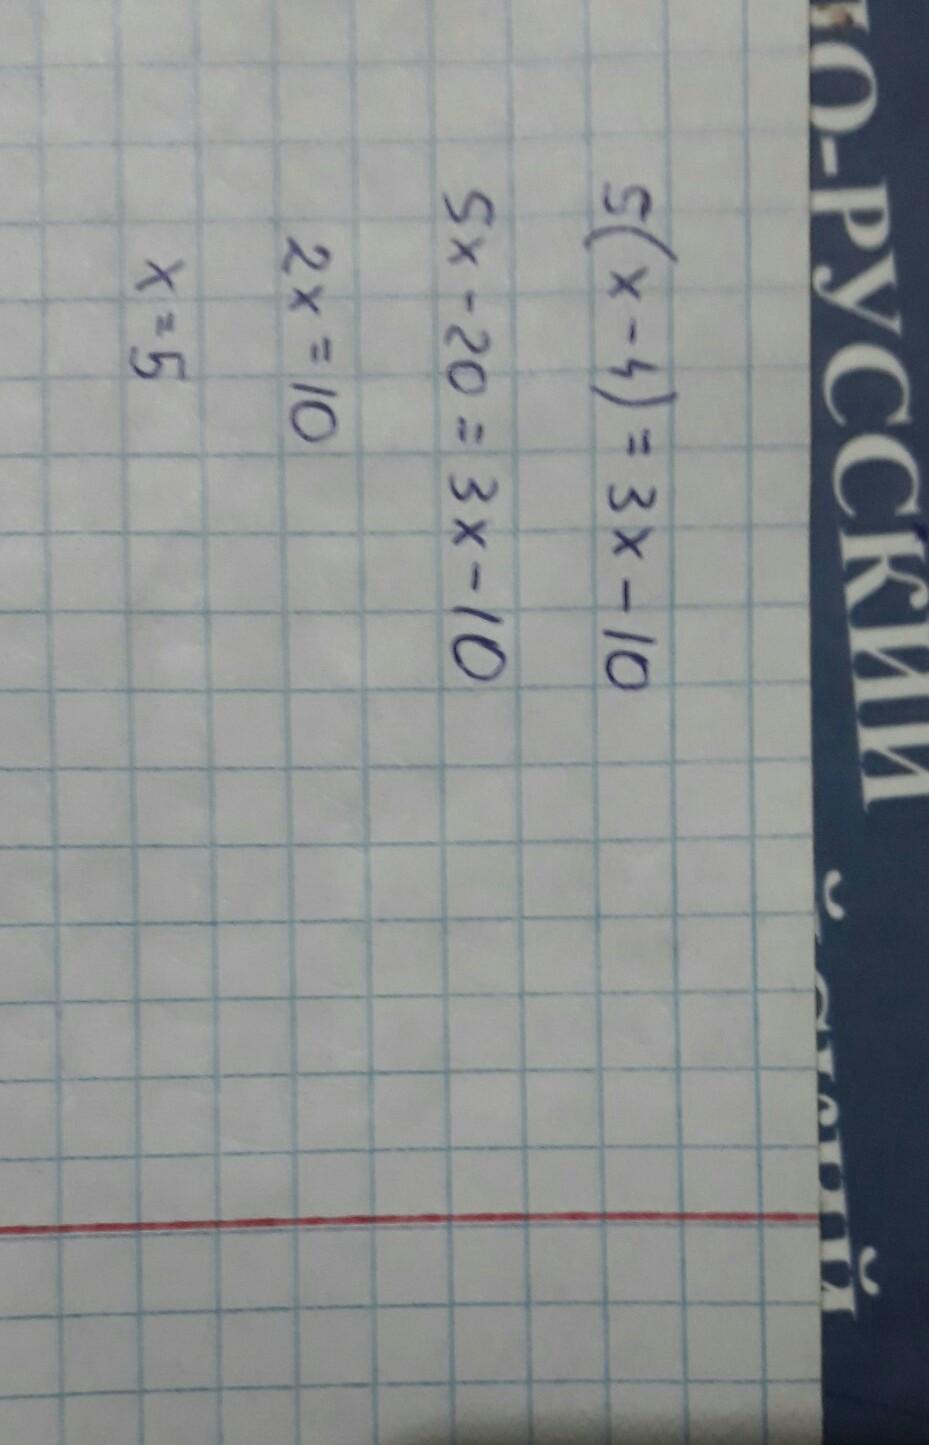 РУССКИЙ
5(x-4)=3x-10
5x-20=3x-10
2x=10
x=5